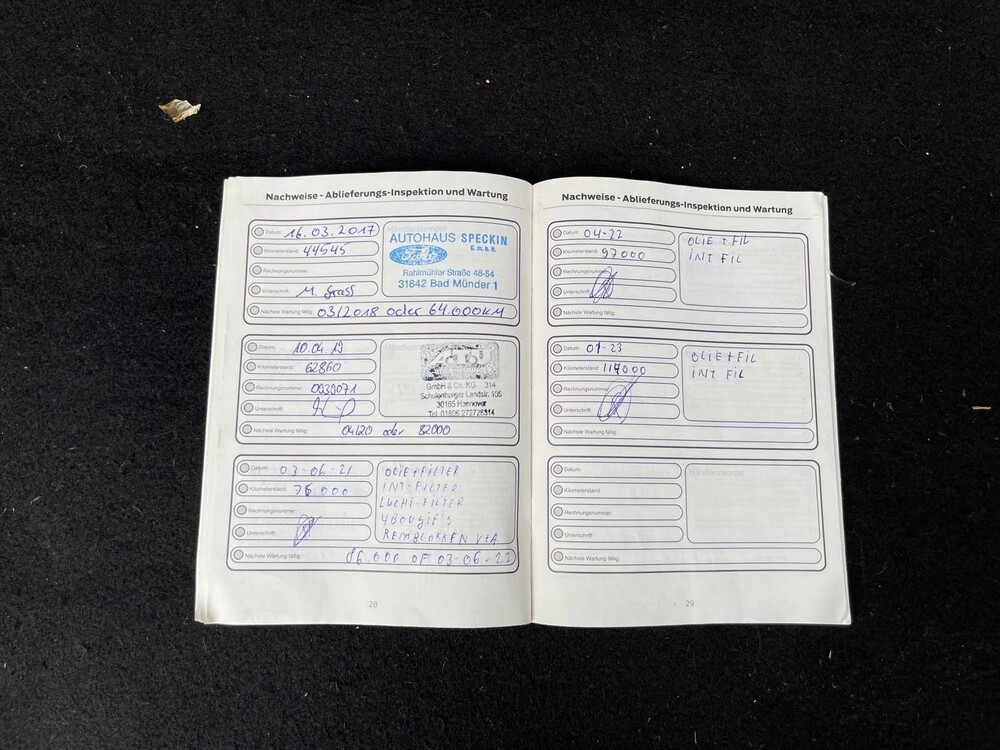 Nachweise - Ablieferungs-Inspektion und Wartung
Datum: 16.03.2017
Kilometerstand: 44545
Rechnungsnummer:
Unterschrift: M. Grass
AUTOHAUS SPECKIN
G.m.b.H.
Ford
Rahlmühler Straße 48-54
31842 Bad Münder 1
Nächste Wartung fällig: 03/2018 oder 64.000KM
Datum: 10.04.19
Kilometerstand: 62860
Rechnungsnummer: 0930071
Unterschrift:
GmbH & Co. KG 314
Schulenburger Landstr. 105
30165 Hannover
Nächste Wartung fällig: 04/20 oder 82000
Datum: 03-06-21
Kilometerstand: 76.000
Rechnungsnummer:
Unterschrift:
OLIE+FILTER
INT-FILTER
LUCHT-FILTER
4 BOUGIE'S
REMBLOKKEN V+A
Nächste Wartung fällig: 86.000 OF 03-06-22
28
Nachweise - Ablieferungs-Inspektion und Wartung
Datum: 04-22
Kilometerstand: 97000
Rechnungsnummer:
Unterschrift:
OLIE + FIL
INT FIL
Nächste Wartung fällig:
Datum: 01-23
Kilometerstand: 114000
Rechnungsnummer:
Unterschrift:
OLIE+FIL
INT FIL
Nächste Wartung fällig:
Datum:
Kilometerstand:
Rechnungsnummer:
Unterschrift:
Händlerstempel
Nächste Wartung fällig:
29